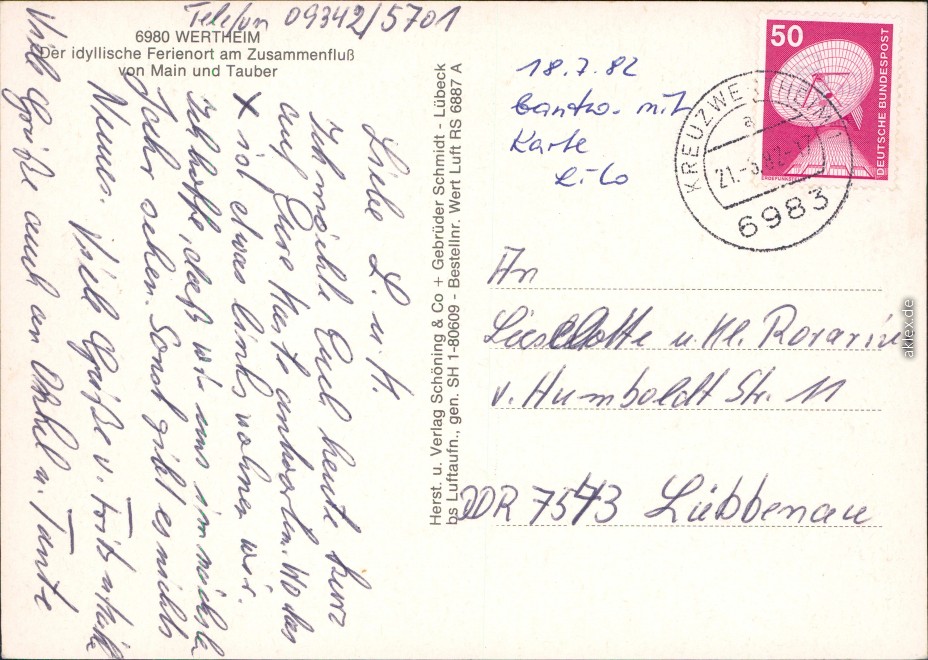 Telefon 09342/5701
6980 WERTHEIM
Der idyllische Ferienort am Zusammenfluß
von Main und Tauber
Liebe L. u. K.
Ich möchte Euch heute kurz
auf Eure Karte antworten. Wo das
x ist etwas links wohnen wir.
Ich hoffe, daß wir uns im nächsten
Jahr sehen. Sonst gibt es nichts
Neues. Viele Grüße v. Fritz u.
Viele Grüße auch an Onkel u. Tante
Herst. u. Verlag Schöning & Co + Gebrüder Schmidt - Lübeck
bs Luftaufn., gen. SH 1-80609 - Bestellnr. Wert Luft RS 6887 A
18.7.82
beantw. mit
Karte
Lilo
50
DEUTSCHE BUNDESPOST
KREUZWERTHEIM
a
21.-5.82-17
6983
An
Lieselotte u. Kl. Rorarius
v. Humboldt Str. 11
DDR 7543 Lübbenau
akpool.de